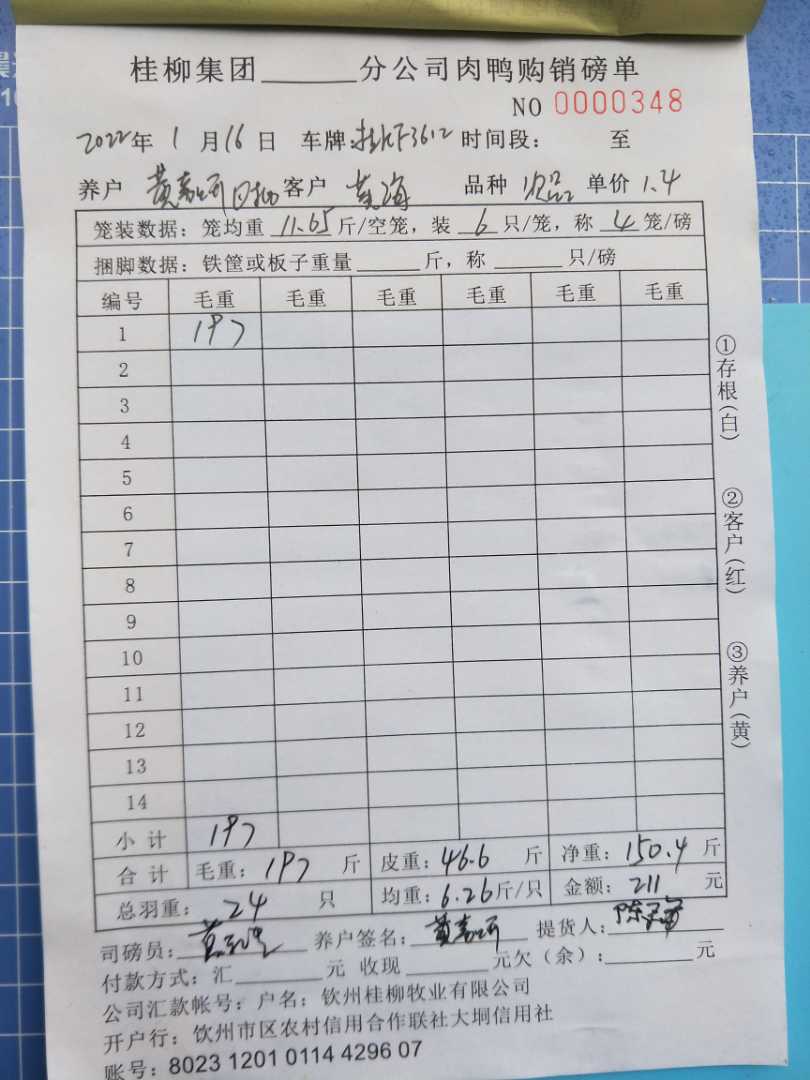 桂柳集团______分公司肉鸭购销磅单
NO 0000348
2022年 1月16日 车牌: 3612 时间段: 至
养户 黄嘉 客户 黄海 品种 次品 单价 1.4
笼装数据: 笼均重 11.65 斤/空笼, 装 6 只/笼, 称 4 笼/磅
捆脚数据: 铁筐或板子重量______斤, 称______只/磅
编号 毛重 毛重 毛重 毛重 毛重 毛重
1 197
2
3
4
5
6
7
8
9
10
11
12
13
14
小计 197
合计 毛重: 197 斤 皮重: 46.6 斤 净重: 150.4 斤
总羽重: 24 只 均重: 6.26斤/只 金额: 211 元
司磅员: 养户签名: 黄嘉 提货人: 陈
付款方式: 汇______元 收现______元欠(余):______元
公司汇款帐号: 户名: 钦州桂柳牧业有限公司
开户行: 钦州市区农村信用合作联社大垌信用社
账号: 8023 1201 0114 4296 07
①存根(白)
②客户(红)
③养户(黄)